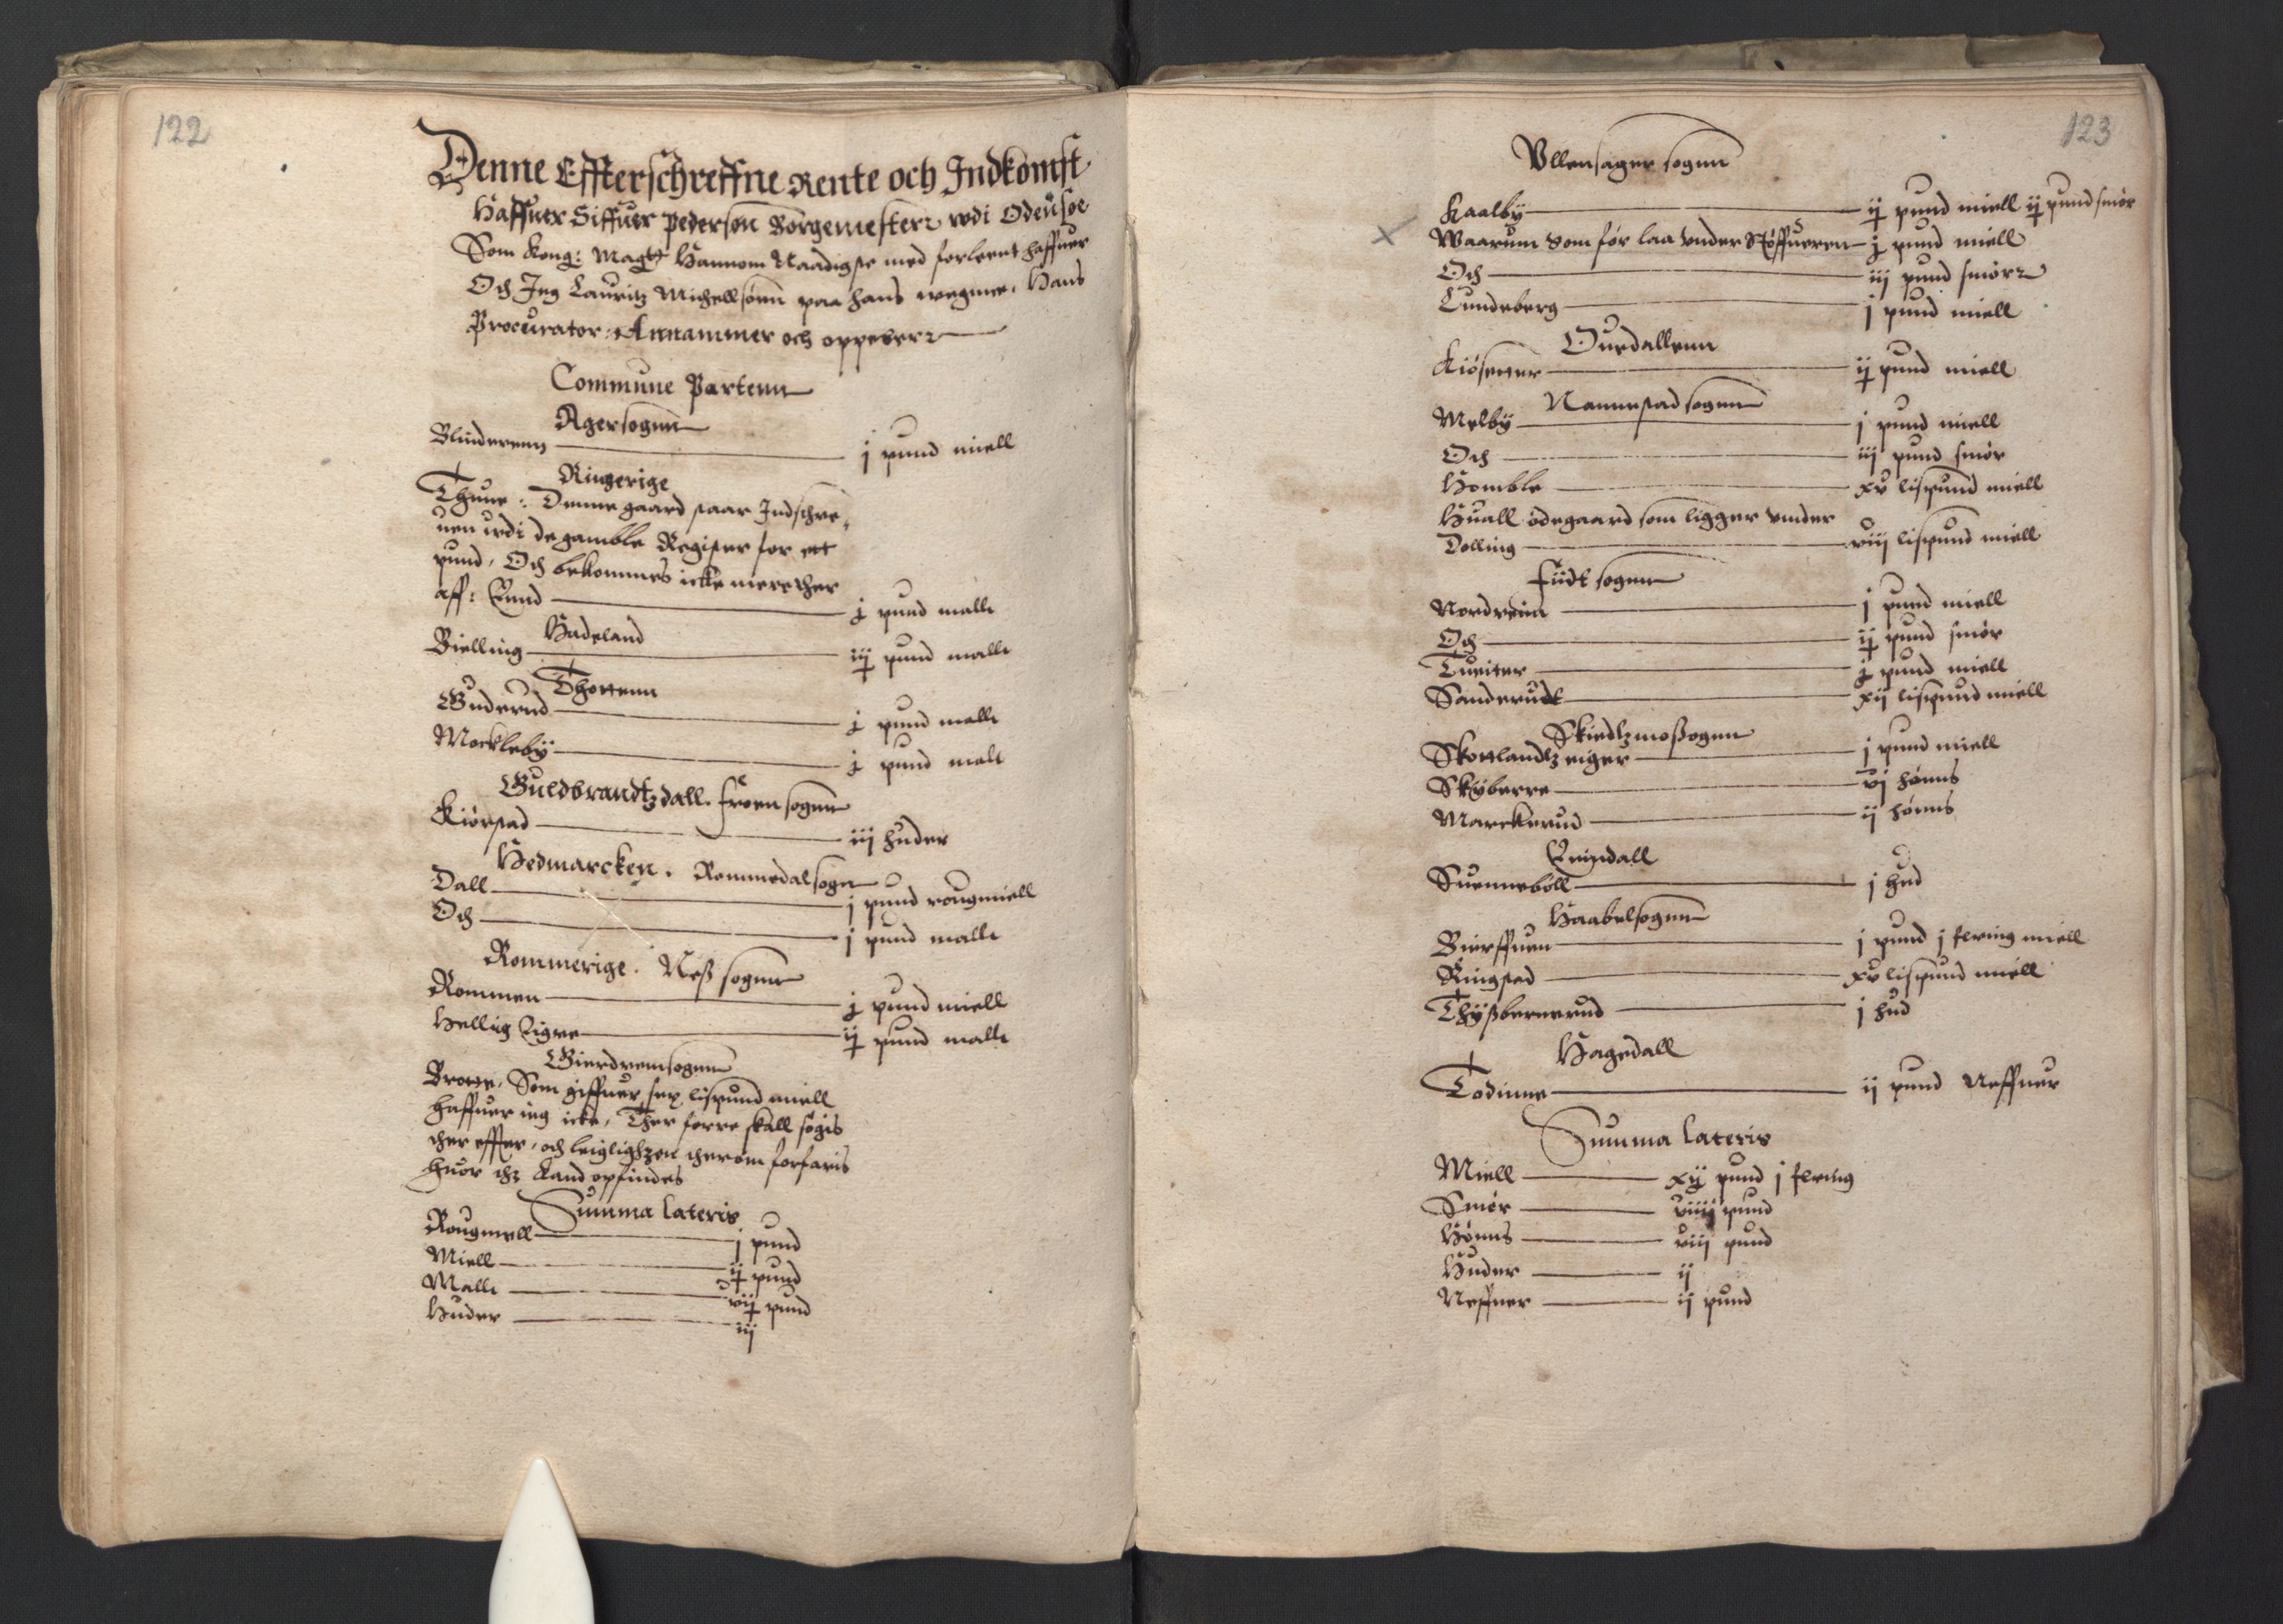 122
Denne Effterschreffne Rente och Indkomst
Haffuer Siffuer Pedersøn Borgemesterr wdi Odensøe
Som Kong: Magtt Hannom Naadigste med forleent haffuer
Och Jeg Lauritz Michellsønn paa hans wegnne, Hans
Procurator: Annammer och oppeberr
Commune Partenn
Agersognn
Blinderenn j pund miell
Ringerige
Thune: Denne gaard staar Indschre,
uen wdi de gamble Register for ett
pund, Och bekommes icke mere ther
aff: Eund j pund mallt
Hadeland
Bielling iij pund mallt
Thottenn
Guderud j pund mallt
Mockleby j pund malt
Guldbrandtzdall. Froen sognn
Kiørstad iij huder
Hedmarcken. Rommedal sogn
Dall j pund rougmiell
Och j pund mallt
Rommerige. Neß sognn
Rommen j pund miell
Hellig Eigre ij pund mallt
Gierdrem sognn
Brotte, Som giffuer sex lispund miell
haffuer ieg icke, Ther forre skall søgis
ther effter, och leiglighzen therom forfaris
huor thz kand opfindes
Summa lateris
Rougmell j pund
Miell ij pund
Mallt vij pund
Huder iij
123
Vllensager sognn
Kaalby ij pund miell ij pund smør
Waarum som før laa vnder Støffueren j pund miell
Och iij pund smørr
Lundeberg j pund miell
Ouerdallenn
Kiøsetter ij pund miell
Nannestad sognn
Melby j pund miell
Och iij pund smør
Homble xv lispund miell
Huall ødegaard som ligger vnder
Dolling viij lispund miell
Fiidt sognn
Nordreim j pund miell
Och ij pund smør
Tueiter j pund miell
Sanderudt xij lispund miell
Skiedtzmoßognn
Skottlandtz eiger j pund miell
Skyberre vj hønns
Marckerud ij hønns
Enindall
Suennebøll j hud
Haabelsognn
Bierffuen j pund j fering miell
Ringstad xv lispund miell
Thyßbernerud j hud
Hagedall
Todinne ij pund Neffuer
Summa lateris
Miell xij pund j fering
Smør viiij pund
Hønns viij pund
Huder ij
Neffuer ij pund